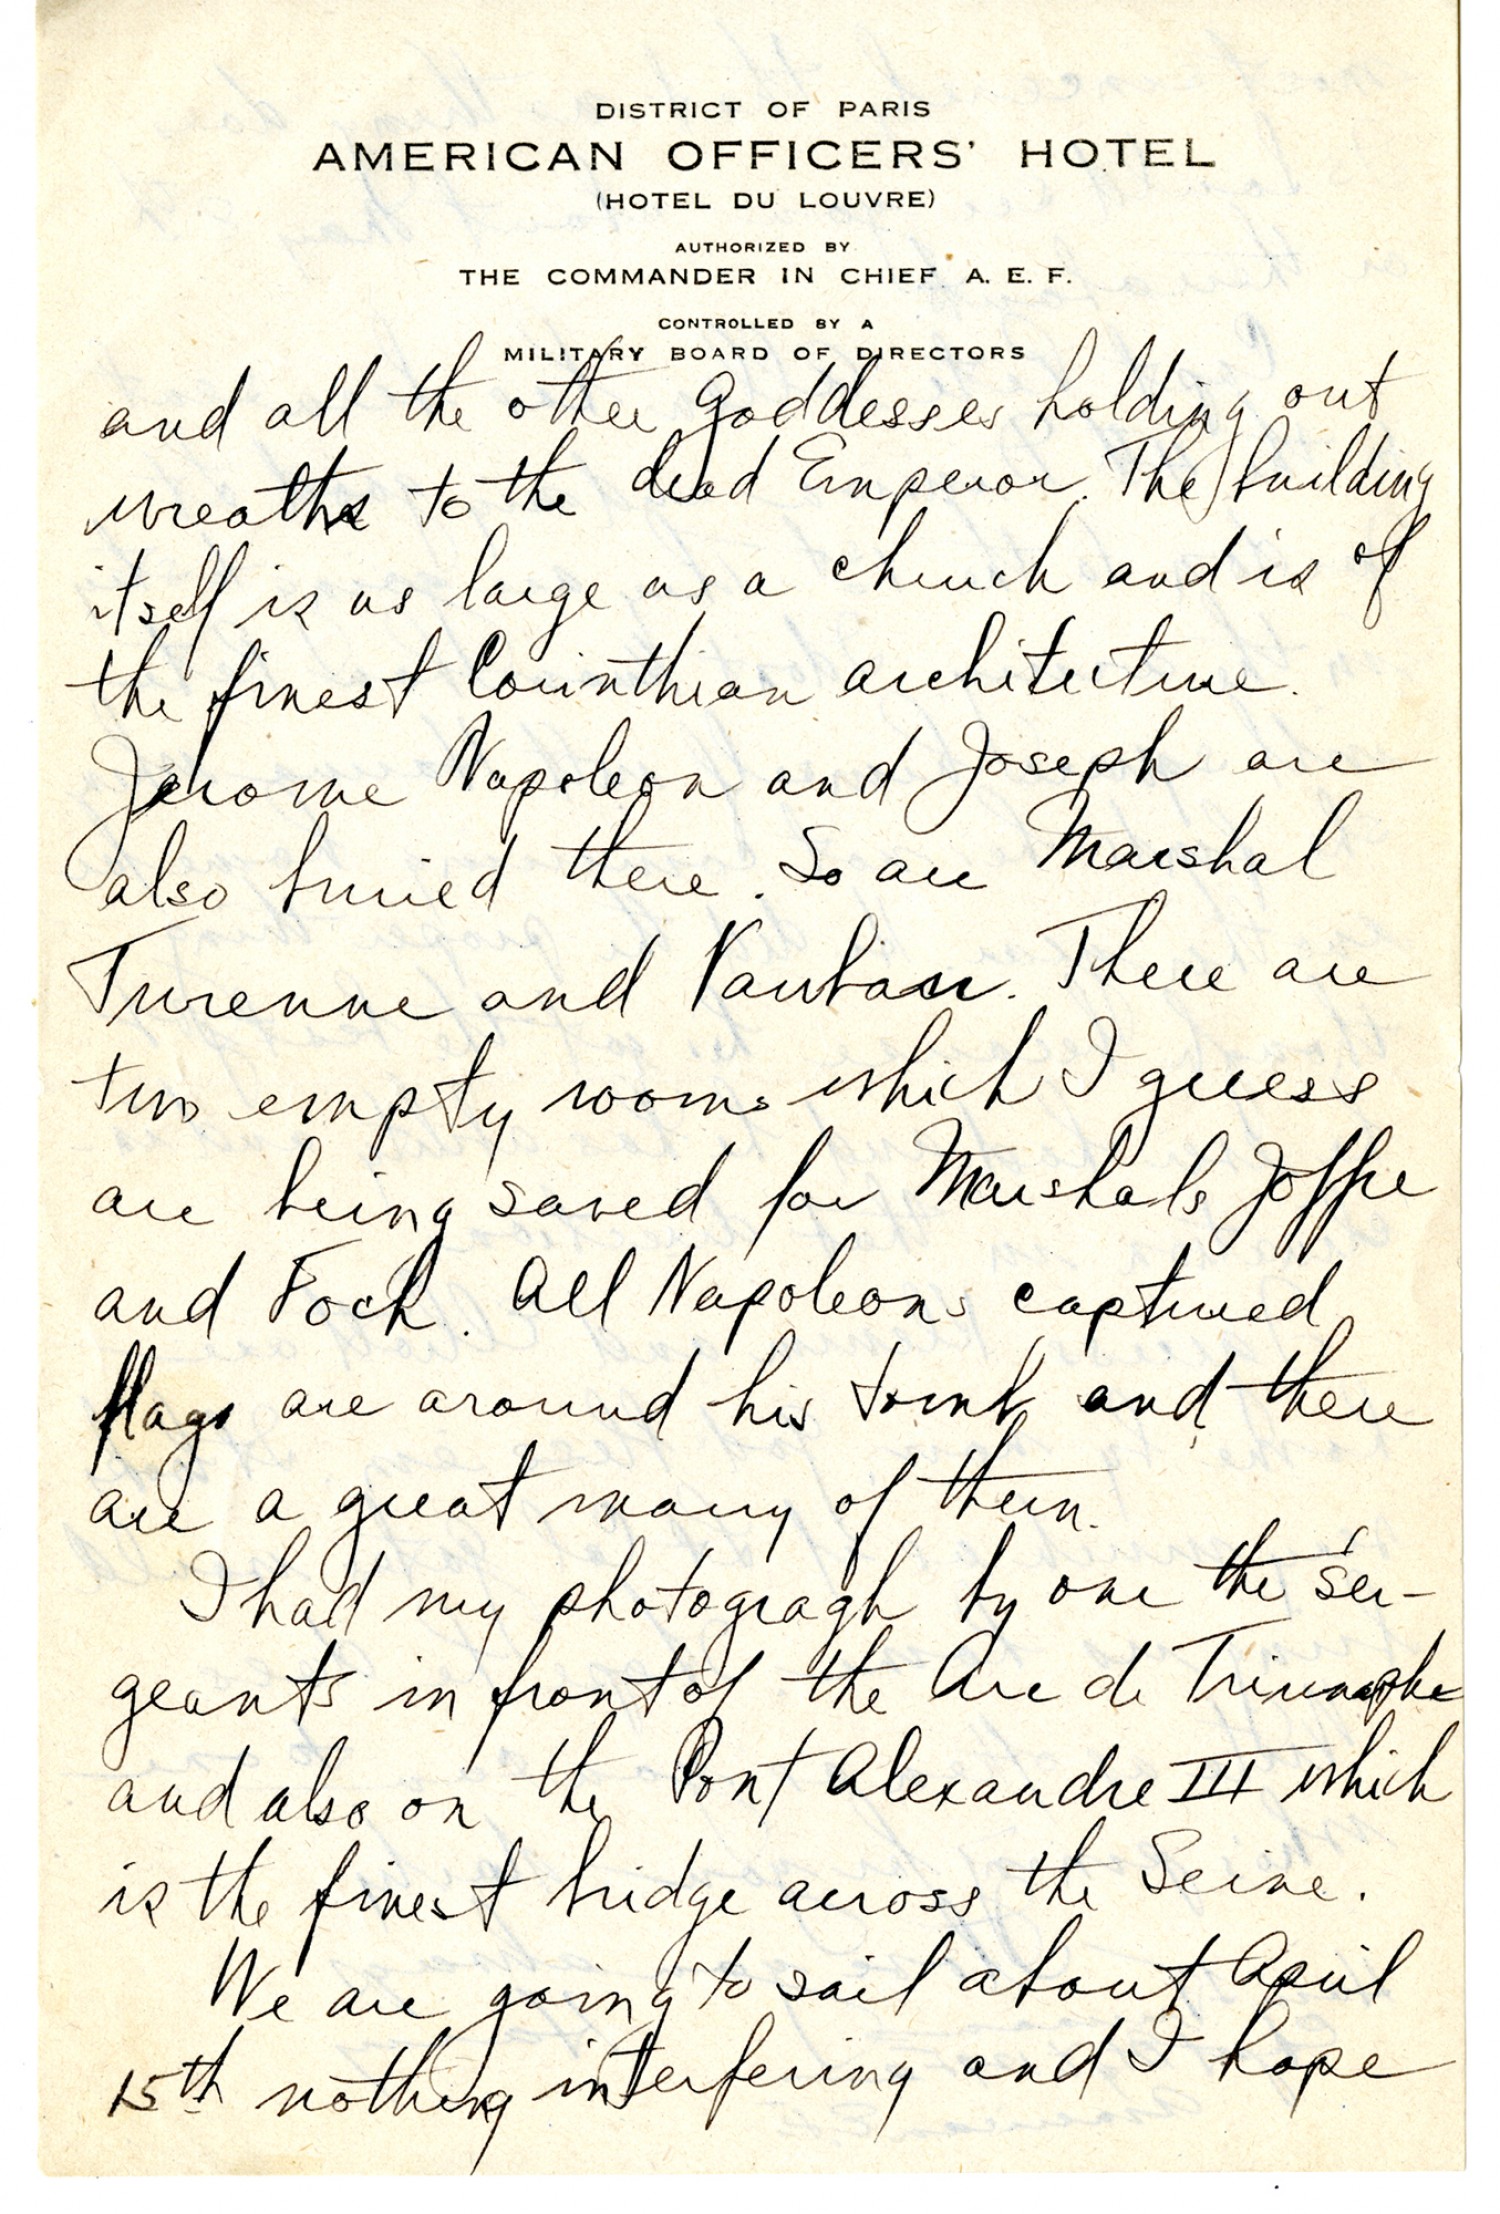 DISTRICT OF PARIS
AMERICAN OFFICERS' HOTEL
(HOTEL DU LOUVRE)
AUTHORIZED BY
THE COMMANDER IN CHIEF A. E. F.
CONTROLLED BY A
MILITARY BOARD OF DIRECTORS
and all the other goddesses holding out
wreaths to the dead Emperor. The building
itself is as large as a church and is of
the finest Corinthian architecture.
Jerome Napoleon and Joseph are
also buried there. So are Marshal
Turenne and Vauban. There are
two empty rooms which I guess
are being saved for Marshals Joffre
and Foch. All Napoleons captured
flags are around his tomb and there
are a great many of them.
I had my photogragh by one the ser-
geants in front of the Arc de Triumphe
and also on the Pont Alexandre III which
is the finest bridge across the Seine.
We are going to sail about April
15th nothing interfering and I hope